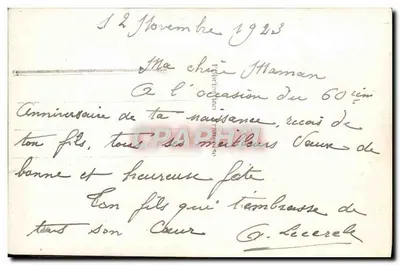 12 Novembre 1923
Ma chère Maman
A l'occasion du 60ième
anniversaire de ta naissance, reçois de
ton fils, tous ses meilleurs Vœux de
bonne et heureuse fête
Ton fils qui t'embrasse de
tout son Cœur